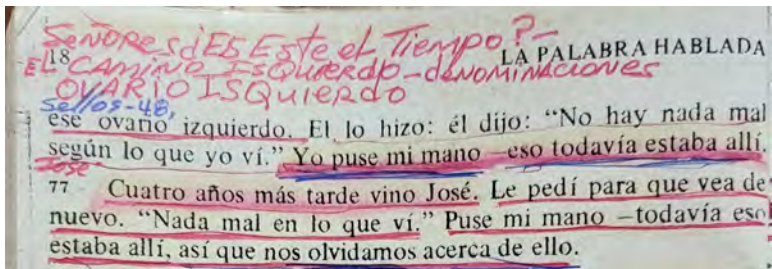 SEÑORES ¿ES ESTE el Tiempo?-
18 LA PALABRA HABLADA
EL CAMINO ISQUIERDO-denOMINACIONES
OVARIO ISQuieRdO
Sellos-48,
ese ovario izquierdo. El lo hizo: él dijo: “No hay nada mal
según lo que yo ví.” Yo puse mi mano —eso todavía estaba allí.
José
77 Cuatro años más tarde vino José. Le pedí para que vea de
nuevo. “Nada mal en lo que ví.” Puse mi mano —todavía eso
estaba allí, así que nos olvidamos acerca de ello.